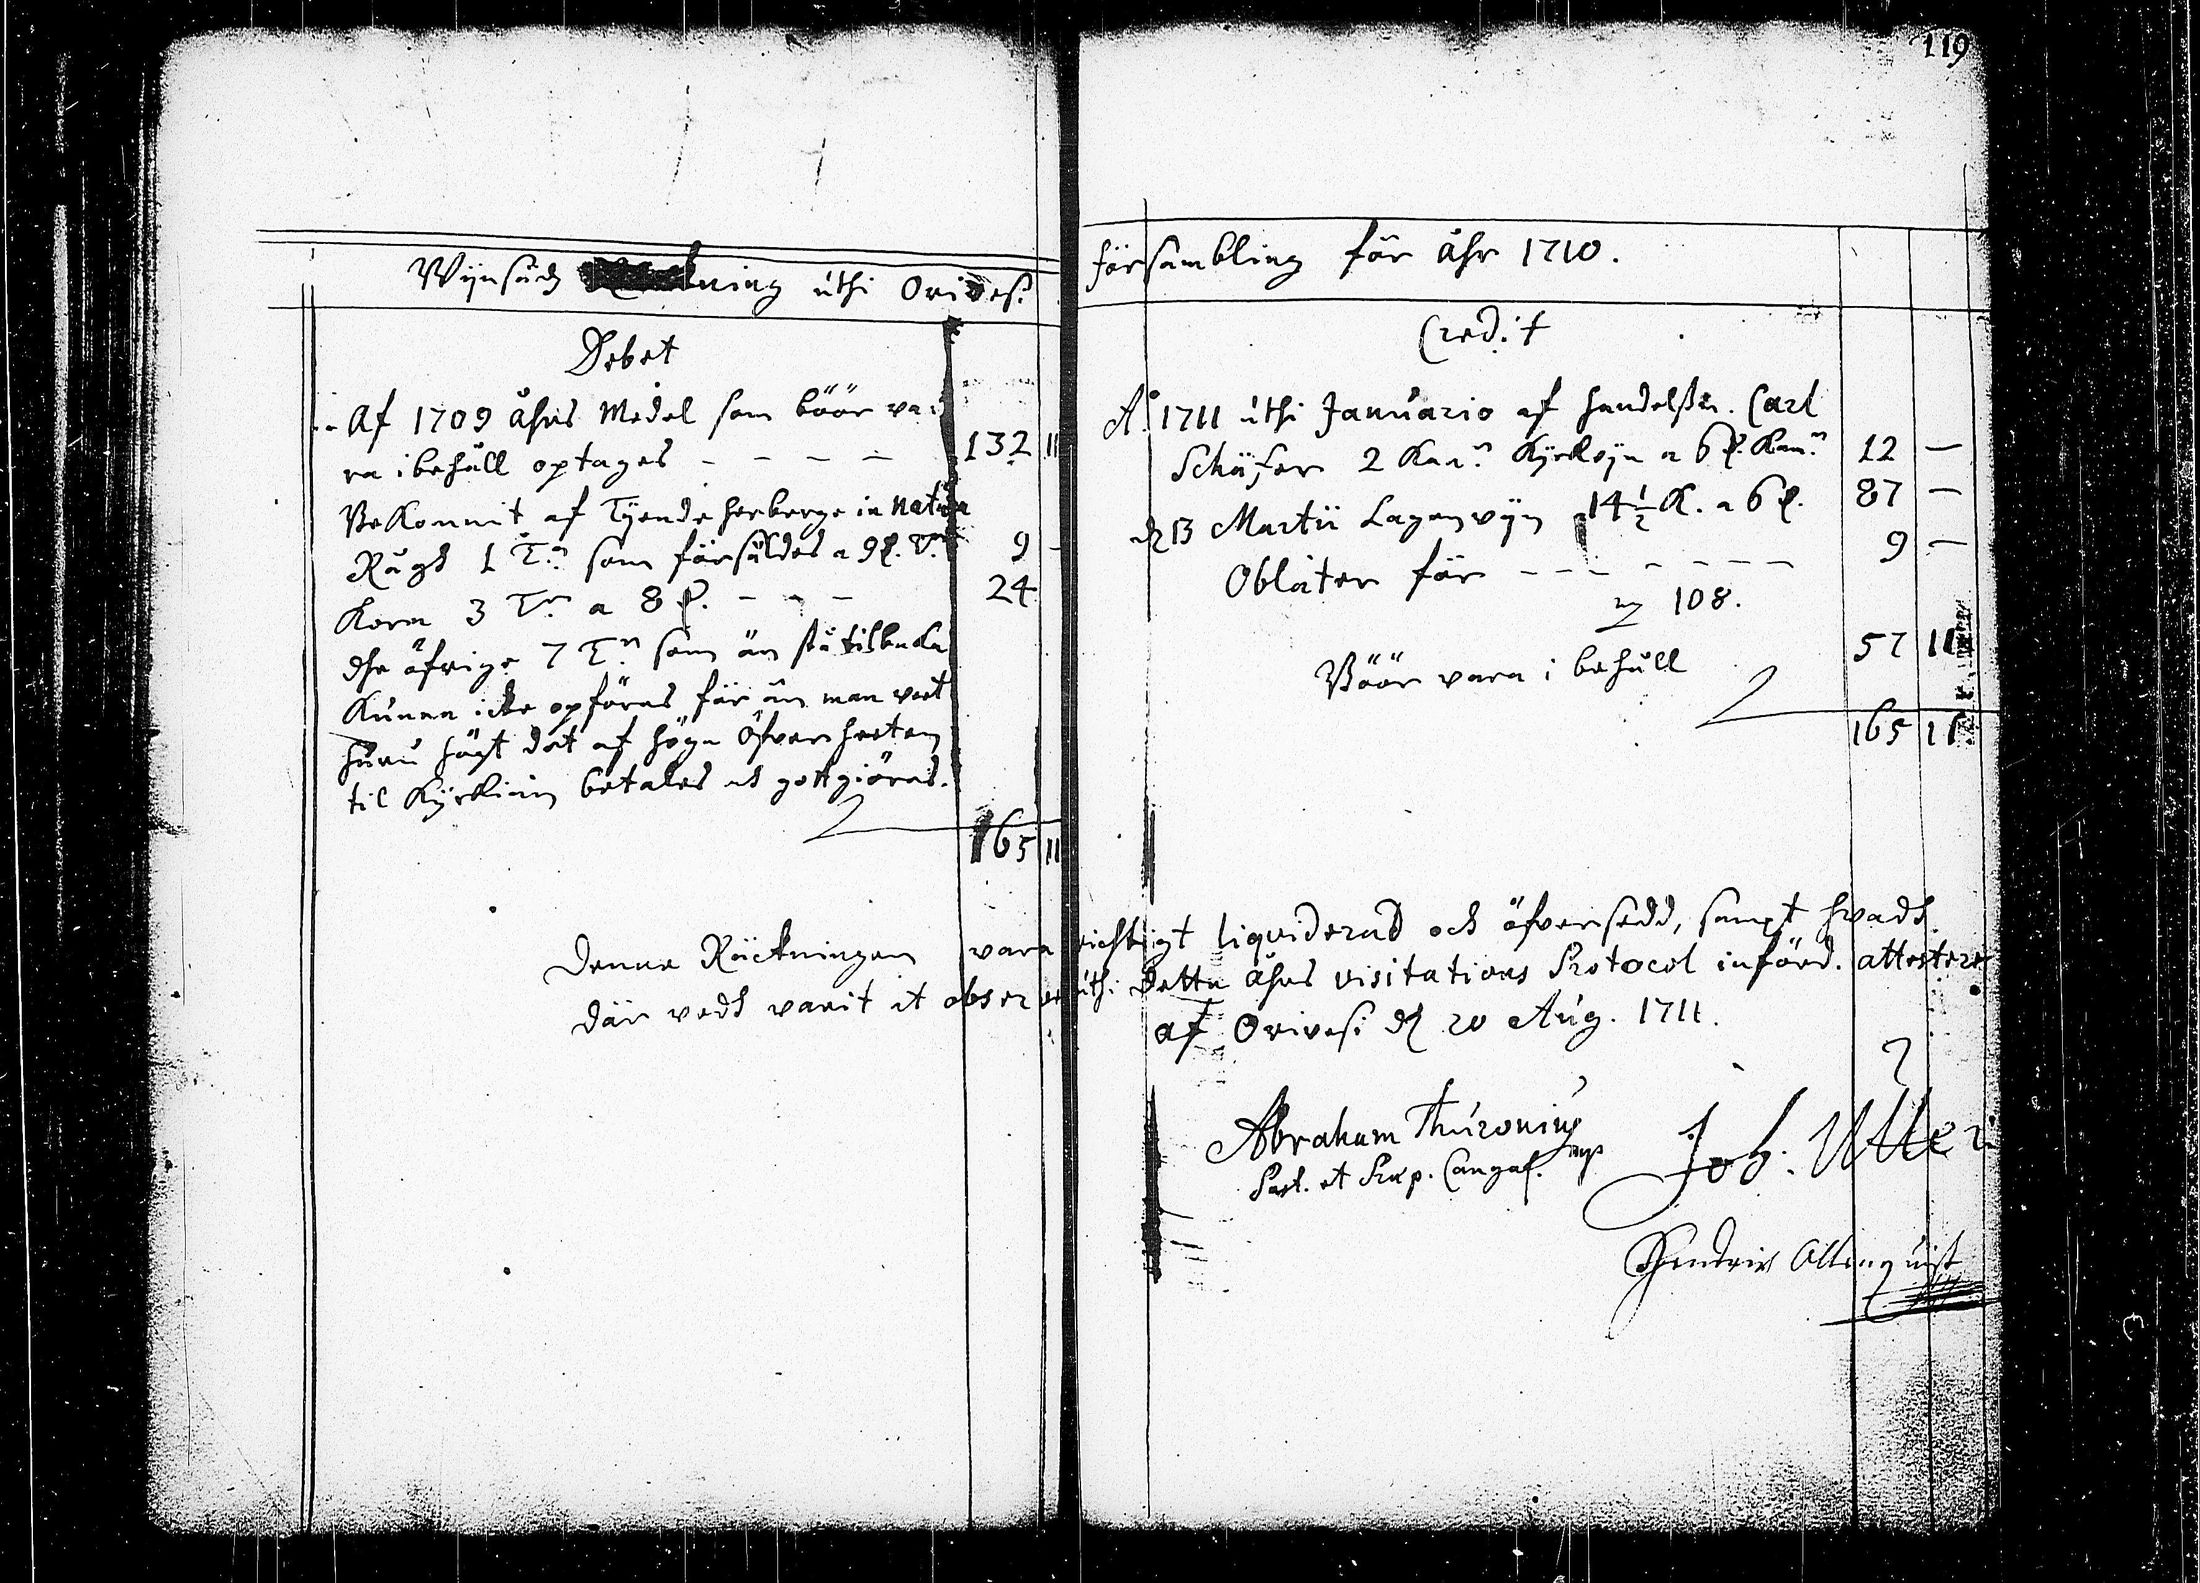 119
Wijnsädz Räkning uthi Orivesi försambling för åhr 1710.
Debet
Af 1709 åhrs Medel som böör va-
ra i behåll optages - - - - 132 11
Bekommit af Tijende herberge in natura
Rågh 1 T:n som försåldes a 9 d. T:n 9 -
Korn 3 T:n a 8 d. - - - 24
dhe öfrige 7 T:n som än stå tilbaka
kunna icke opföras för än man veet
huru högt det af höga Öfverheeten
til Kyrkian betales och gottgiöras.
165 11
Credit
A:o 1711 uthi Januario af handelssm. Carl
Schäfer 2 Kan:r Kyrkvijn a 6 d. Kan:n 12 -
d 13 Martii Lagenvijn 14 1/2 K. a 6 d. 87 -
Oblater för - - - - - - - 9 -
108.
Böör vara i behåll 57 11
165 11
Denne Räckningen vara richtigt liquiderad och öfversedd, sampt hvadh
där vedh varit at observera uthi detta åhrs visitations Protocol införd. attesterer
af Orivesi d 20 Aug. 1711.
Abraham Thuronius
mp
Past. et Præp. Cangas.
Joh. Utter
Hendrik Allenquist